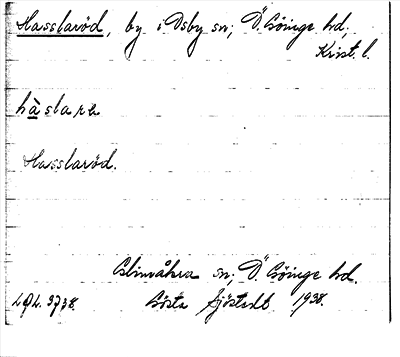 Hasslaröd, by i Osby sn; Ö. Göinge hd,
Krist. l.
hàslare
Hasslaröd.
Glimåkra sn; Ö. Göinge hd.
Gösta Sjöstedt 1938.